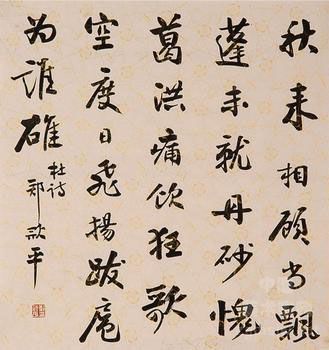 秋来相顾尚飘
蓬未就丹砂愧
葛洪痛饮狂歌
空度日飞扬跋扈
为谁雄
杜诗
郑 平